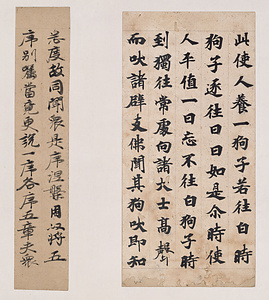 此使人養一狗子若往白時
狗子逐往日日如是尒時使
人平值一日忘不往白狗子時
到獨往常處向諸大士高聲
而吠諸辟支佛聞其狗吠即知
度故同聞衆是序涅槃用將五
序別當更說一序各序五章夫衆